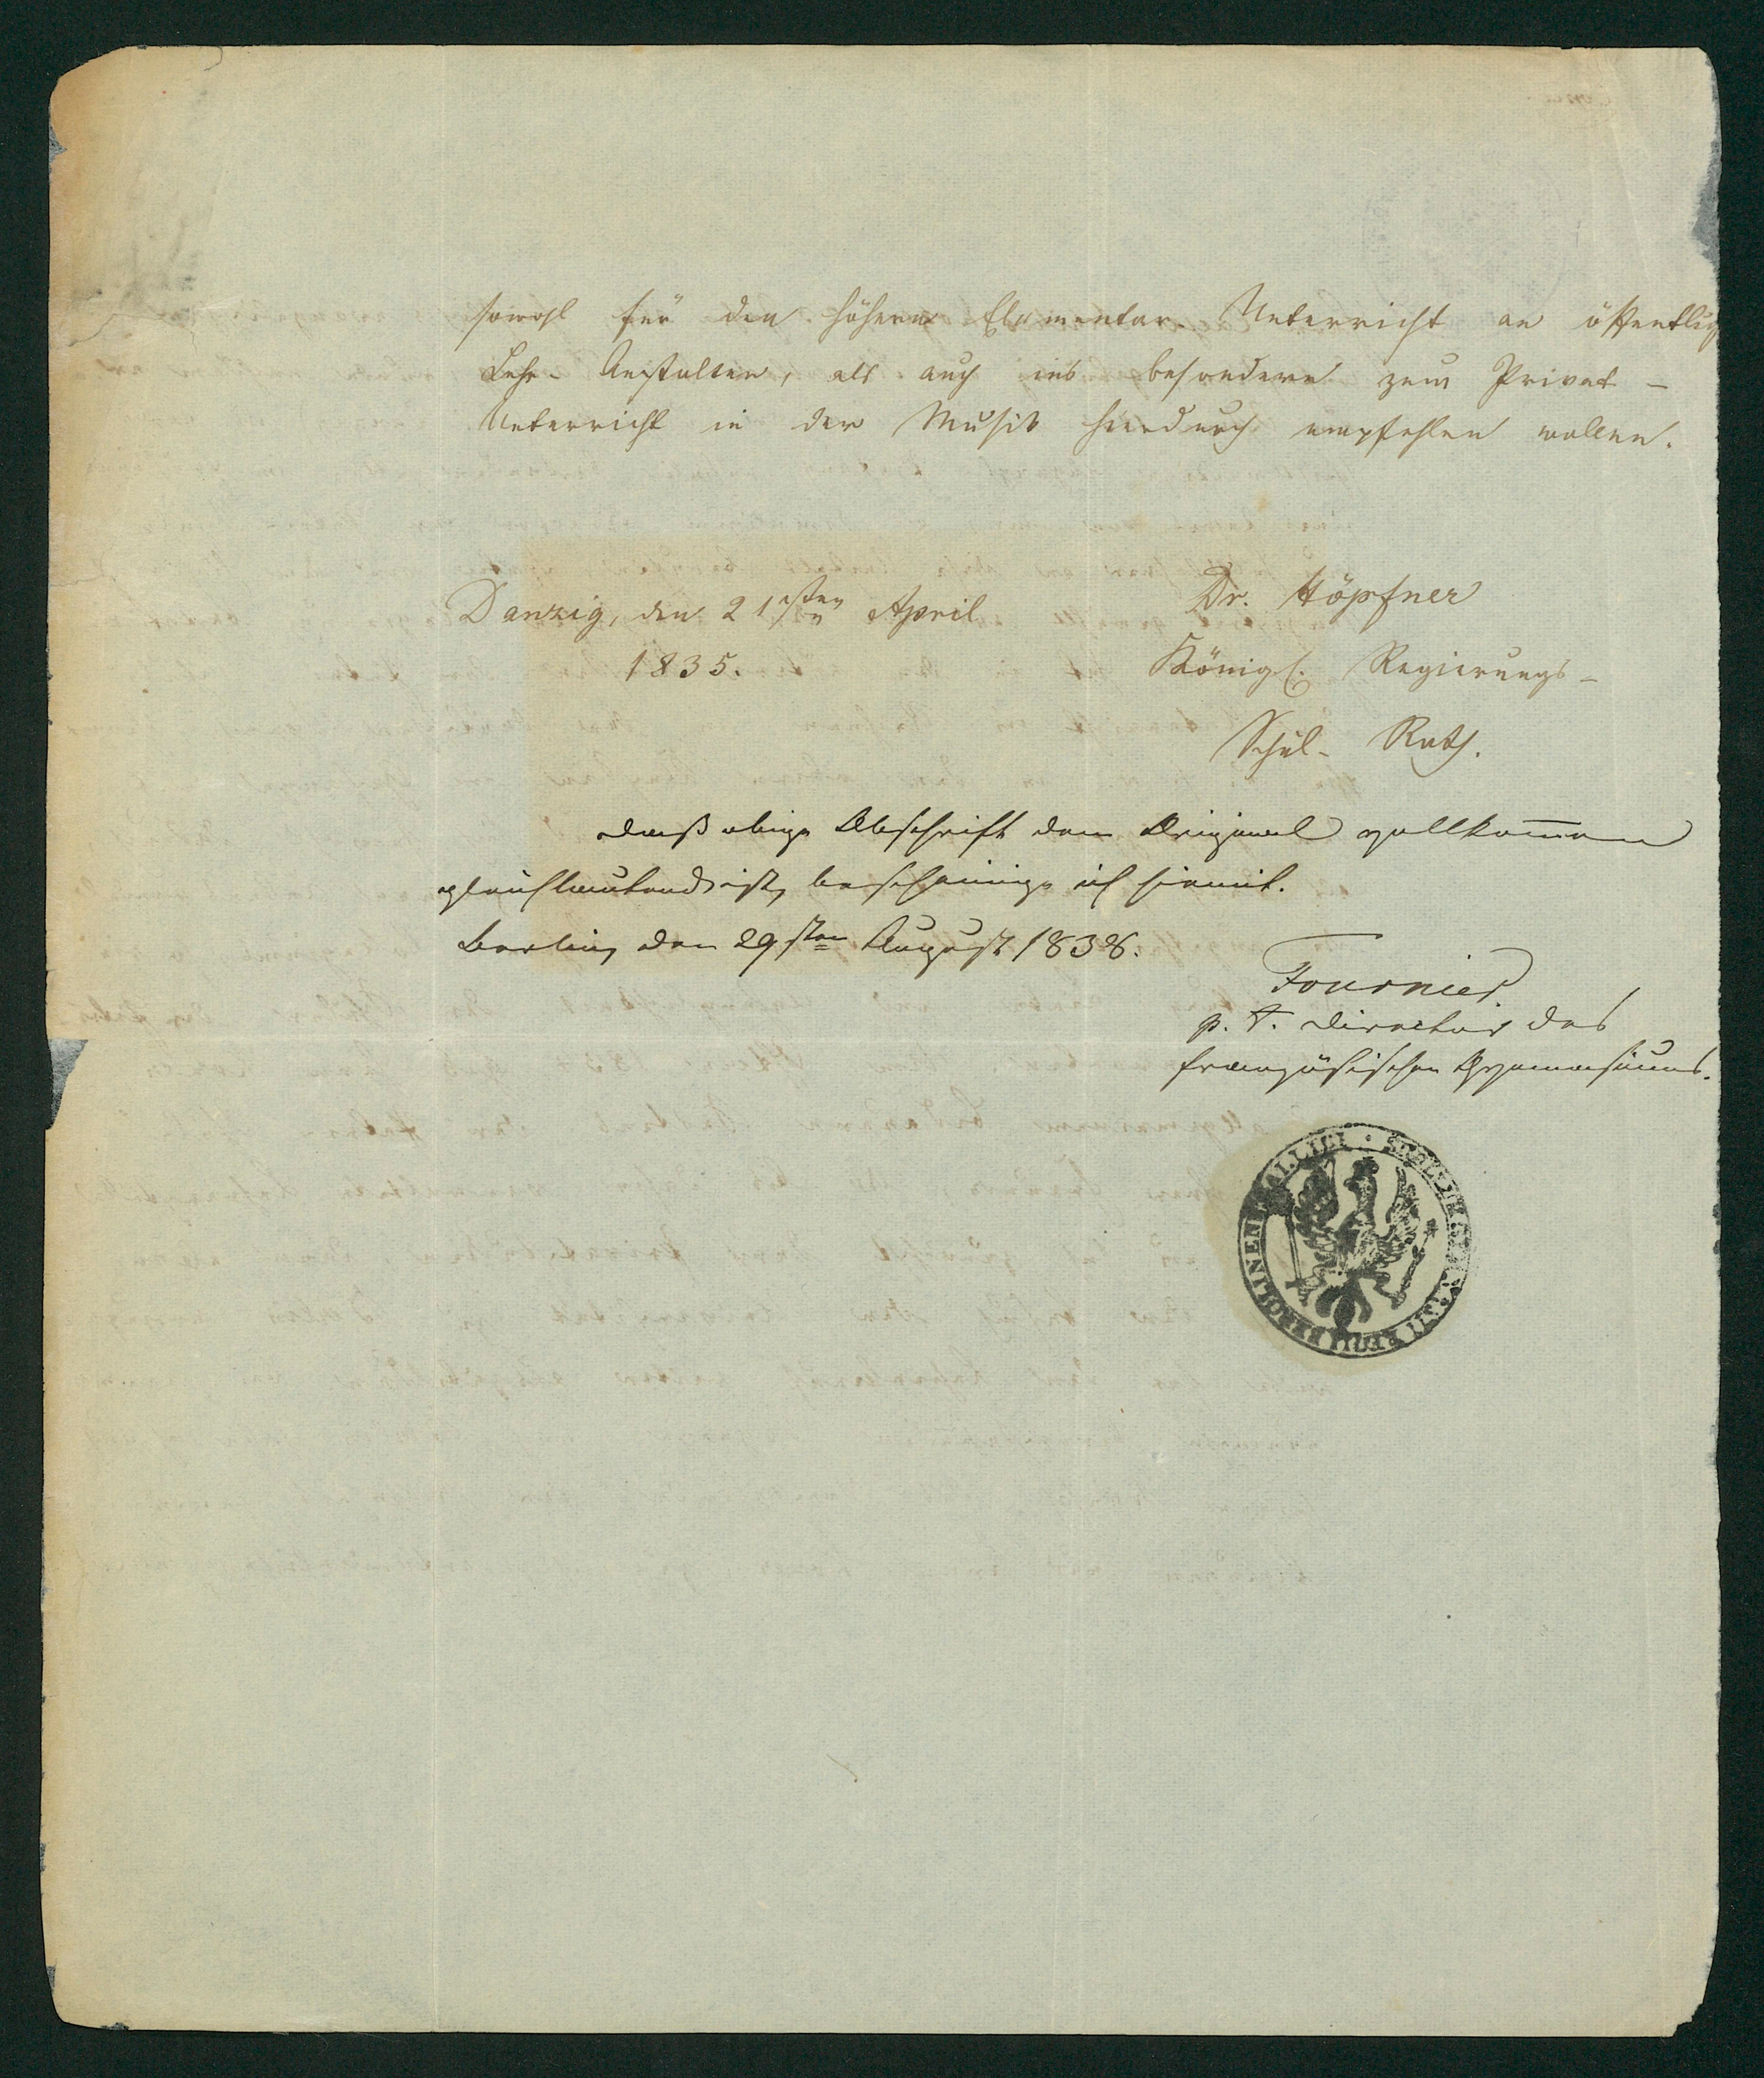 sowohl für den höhern Elementar-Unterricht an öffentlich
Lehr-Anstalten, als auch ins besondere zum Privat-
Unterricht in der Musik hierdurch empfehlen wollen.
Danzig, den 21sten April
1835.
Dr. Höpfner
Königl. Regierungs-
Schul-Rath.
Daß obige Abschrift dem Original vollkom̅en
gleichlautend ist, bescheinige ich hiemit.
Berlin, den 29sten August 1838.
Fournier
p. t. Director des
französischen Gymnasiums.